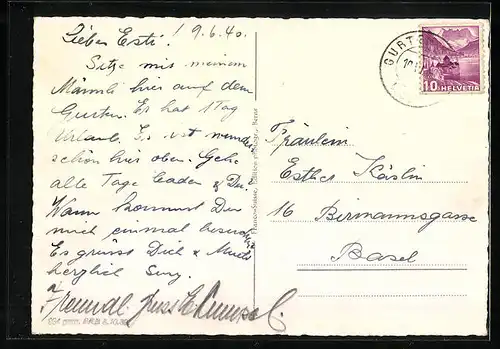 Liebes Esti! 19.6.40.
Sitze mit meinem
Männli hier auf dem
Gurten. Er hat 1 Tag
Urlaub. Es ist wunder-
schön hier oben. Gehe
alle Tage baden & Du?
Wann kommst Du
mich einmal besuchen
Es grüsst Dich & Mueti
herzlich Suzy.
Freundl. Gruss
994 gemss. BRB 3.10.39
Franco-Suisse, Berne
GURT
10
HELVETIA
Fräulein
Esther Käslin
16 Birmannsgasse
Basel